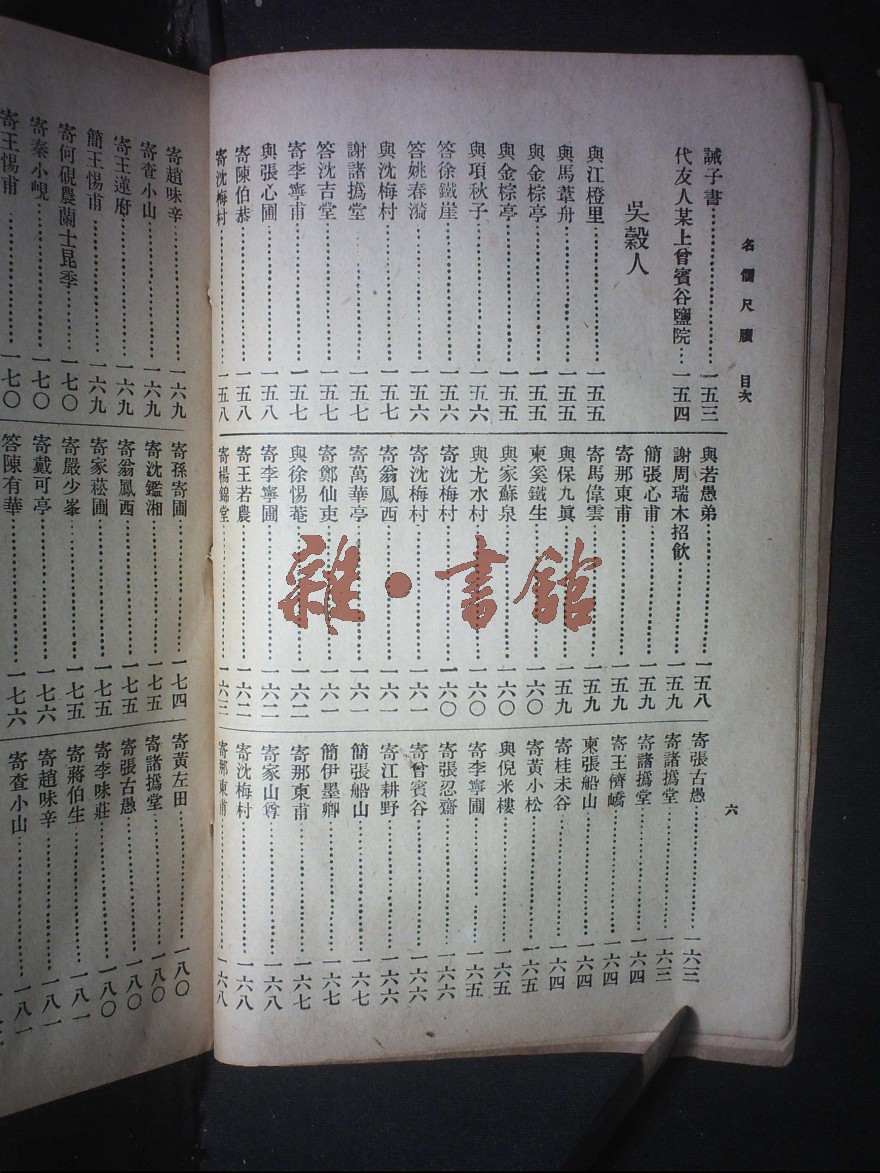 名儒尺牘　目次
六
誡子書⋯⋯一五三
代友人某上曾賓谷鹽院⋯⋯一五四
吳穀人
與江橙里⋯⋯一五五
與馬葦舟⋯⋯一五五
與金棕亭⋯⋯一五五
與金棕亭⋯⋯一五五
與項秋子⋯⋯一五六
答徐鐵崖⋯⋯一五六
答姚春漪⋯⋯一五六
與沈梅村⋯⋯一五七
謝諸撝堂⋯⋯一五七
答沈吉堂⋯⋯一五七
寄李寧甫⋯⋯一五七
與張心圃⋯⋯一五八
寄陳伯恭⋯⋯一五八
寄沈梅村⋯⋯一五八
與若愚弟⋯⋯一五八
謝周瑞木招飲⋯⋯一五九
簡張心甫⋯⋯一五九
寄那東甫⋯⋯一五九
寄馬偉雲⋯⋯一五九
與保九眞⋯⋯一五九
柬奚鐵生⋯⋯一六〇
與家蘇泉⋯⋯一六〇
與尤水村⋯⋯一六〇
寄沈梅村⋯⋯一六〇
寄沈梅村⋯⋯一六一
寄翁鳳西⋯⋯一六一
寄萬華亭⋯⋯一六一
寄鄭仙吏⋯⋯一六一
與徐惕菴⋯⋯一六二
寄李寧圃⋯⋯一六二
寄王若農⋯⋯一六二
寄楊錦堂⋯⋯一六三
寄張古愚⋯⋯一六三
寄諸撝堂⋯⋯一六三
寄諸撝堂⋯⋯一六四
寄王儕嶠⋯⋯一六四
柬張船山⋯⋯一六四
寄桂未谷⋯⋯一六四
寄黃小松⋯⋯一六五
與倪米樓⋯⋯一六五
寄李寧圃⋯⋯一六五
寄張忍齋⋯⋯一六六
寄曾賓谷⋯⋯一六六
寄江耕野⋯⋯一六六
簡張船山⋯⋯一六七
簡伊墨卿⋯⋯一六七
寄那東甫⋯⋯一六七
寄家山尊⋯⋯一六八
寄沈梅村⋯⋯一六八
寄那東甫⋯⋯一六八
寄趙味辛⋯⋯一六九
寄查小山⋯⋯一六九
寄王蓮府⋯⋯一六九
簡王惕甫⋯⋯一六九
寄何硯農蘭士昆季⋯⋯一七〇
寄秦小峴⋯⋯一七〇
寄王惕甫⋯⋯一七〇
寄孫寄圃⋯⋯一七四
寄沈鑑湘⋯⋯一七五
寄翁鳳西⋯⋯一七五
寄家菘圃⋯⋯一七五
寄嚴少峯⋯⋯一七五
寄戴可亭⋯⋯一七六
答陳有華⋯⋯一七六
寄黃左田⋯⋯一八〇
寄諸撝堂⋯⋯一八〇
寄張古愚⋯⋯一八〇
寄李味莊⋯⋯一八〇
寄蔣伯生⋯⋯一八一
寄趙味辛⋯⋯一八一
寄查小山⋯⋯一八一
雜·書館